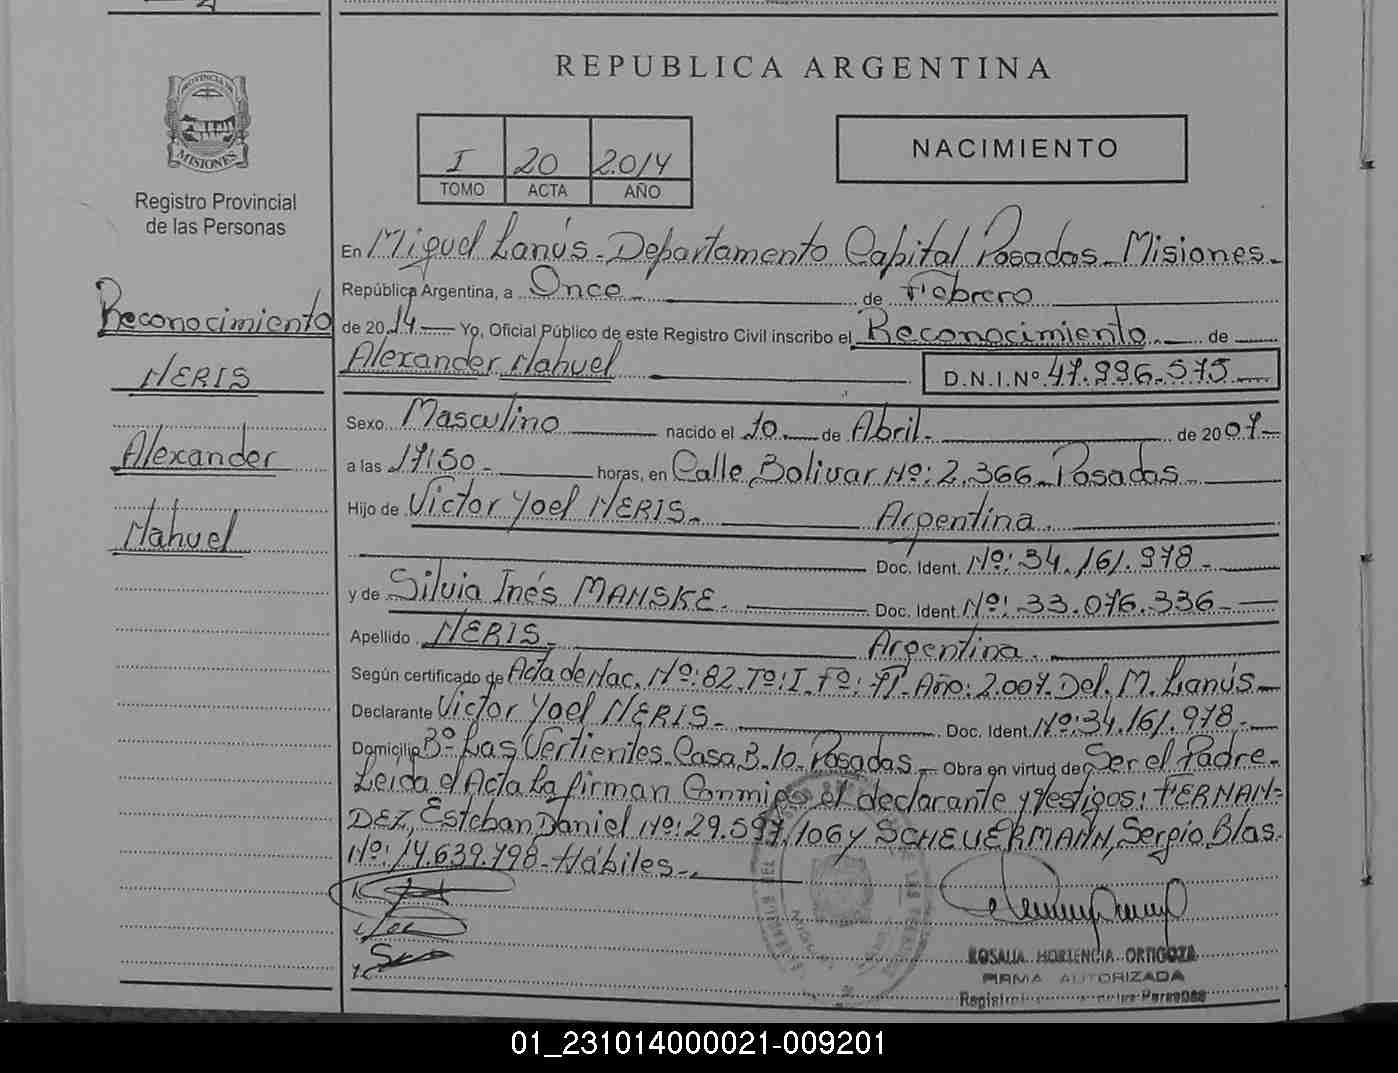 REPUBLICA ARGENTINA
PROVINCIA DE
MISIONES
Registro Provincial
de las Personas
I 20 2.014
TOMO ACTA AÑO
NACIMIENTO
Reconocimiento
NERIS
Alexander
Nahuel
En Miguel Lanús - Departamento Capital Posadas - Misiones -
República Argentina, a Once de Febrero
de 2014 Yo, Oficial Público de este Registro Civil inscribo el Reconocimiento de
Alexander Nahuel D.N.I.Nº 47.996.575
Sexo Masculino nacido el 10 de Abril - de 2007
a las 17:50 - horas, en Calle Bolivar Nº: 2.366 - Posadas
Hijo de Victor Yoel NERIS - Argentina
Doc. Ident. Nº: 34.161.978 -
y de Silvia Inés MANSKE Doc. Ident. Nº: 33.076.336
Apellido NERIS - Argentina
Según certificado de Acta de Nac. Nº: 82. Tº: I. Fº: Año: 2.007. Del. M. Lanús
Declarante Victor Yoel NERIS - Doc. Ident. Nº: 34.161.978 -
Domicilio Bº Las Vertientes. Casa B-10 - Posadas Obra en virtud de Ser el Padre -
Leida el Acta La firman Conmigo el declarante y Testigos: FERNAN=
DEZ, Esteban Daniel Nº: 29.597.106 y SCHEUERMANN, Sergio Blas.
Nº: 14.639.798 - Hábiles
ROSALIA HORTENCIA ORTIGOZA
FIRMA AUTORIZADA
de las Personas
01_231014000021-009201